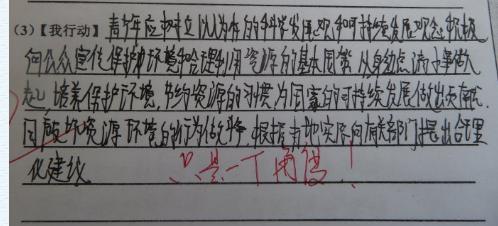 (3)【我行动】青少年应树立以人为本的科学发展观和可持续发展观念,积极
向公众宣传保护环境和合理利用资源的基本国策,从身边点滴小事做
起,培养保护环境,节约资源的习惯,为国家的可持续发展做出贡献,
同破坏资源环境的行为做斗争,根据当地实际向有关部门提出合理
化建议
只是一丁